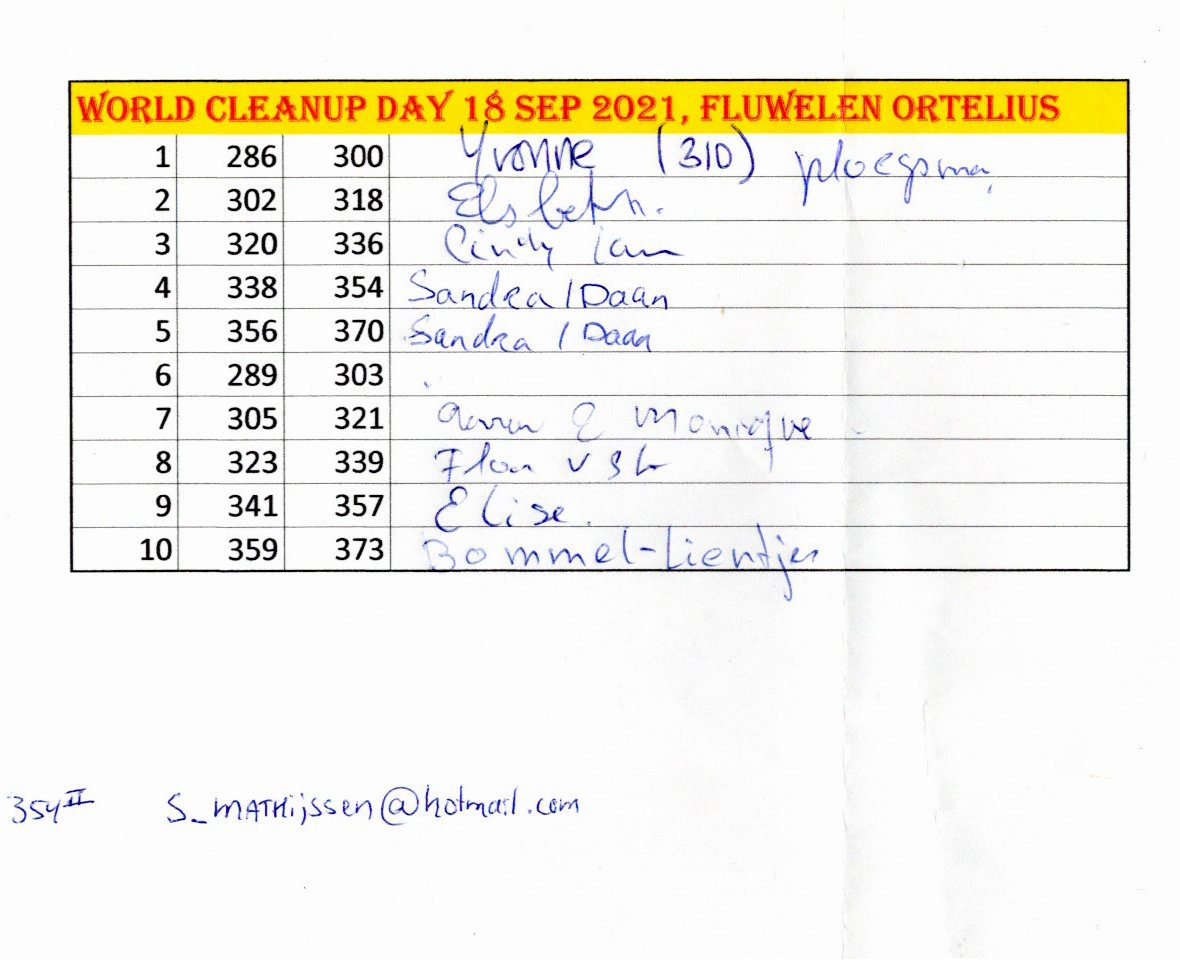 WORLD CLEANUP DAY 18 SEP 2021, FLUWELEN ORTELIUS
1 286 300 Yvonne (310) ploegsma
2 302 318 Elsbeth.
3 320 336 Cindy
4 338 354 Sandra / Daan
5 356 370 Sandra / Daan
6 289 303
7 305 321 & Monique
8 323 339
9 341 357 Elise.
10 359 373 Bommel-Lientjes
354 II S_MATHijssen@hotmail.com